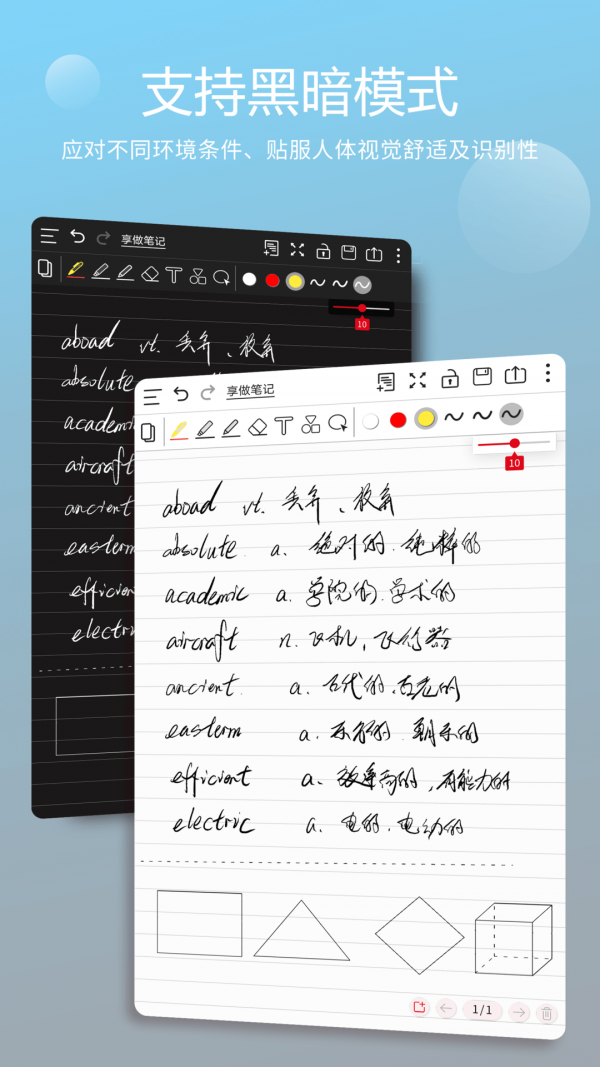 支持黑暗模式
应对不同环境条件、贴服人体视觉舒适及识别性
享做笔记
10
aboad vt. 丢弃、放弃
absolute
academic
aircraft
ancient
easterm
efficient
electric
享做笔记
10
aboad vt. 丢弃、放弃
absolute a. 绝对的.纯粹的
academic a. 学院的.学术的
aircraft n. 飞机, 飞行器
ancient. a. 古代的.古老的
easterm a. 东方的.朝东的
efficient a. 效率高的, 有能力的
electric a. 电的.电动的
1/1